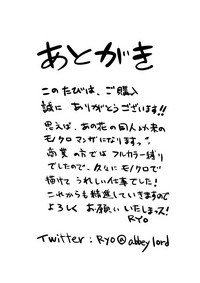 あとがき
このたびは、ご購入
誠に ありがとうございます!!
思えば、あの花の同人以来の
モノクロマンガになります。
商業の方ではフルカラー縛り
でしたので、久々にモノクロで
描けて うれしい仕事でした!
これからも精進していきますので
よろしく お願い いたしまっス!
RYO
Twitter : Ryo@abbeylord